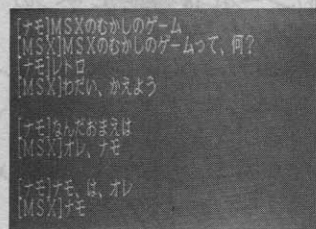 [ナモ]MSXのむかしのゲーム
[MSX]MSXのむかしのゲームって、何？
[ナモ]レトロ
[MSX]わだい、かえよう
[ナモ]なんだおまえは
[MSX]オレ、ナモ
[ナモ]ナモ、は、オレ
[MSX]ナモ